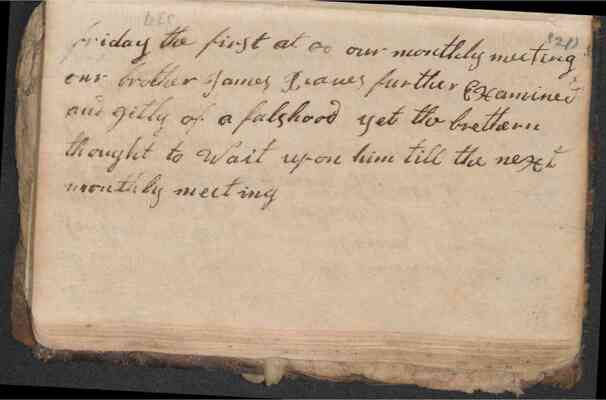 (21)
friday the first at oo our monthly meeting
our brother James Reaves further Examined
and gilty of a falshood yet the brethern
thought to Wait upon him till the next
monthly meeting